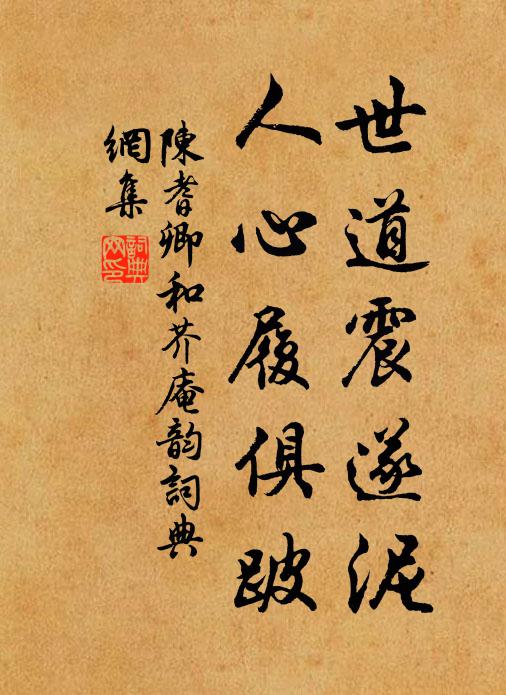 世道震遂泥
人心履俱跛
陳耆卿和芥庵韵詞典
網集
詞典
网印